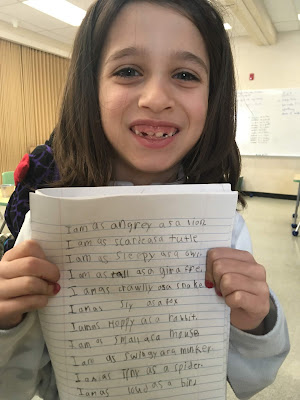 I am as angrey as a lion.
I am as scare as a tutle.
I am as sleepy as a
I am as tall as a giraffe.
I am as crawliy as a snake.
I am as sly as a fox
I am as Hoppy as a rabbit.
I am as small as a mouse
I am as swingy as a
I am as as a spider.
I am as loud as a bird